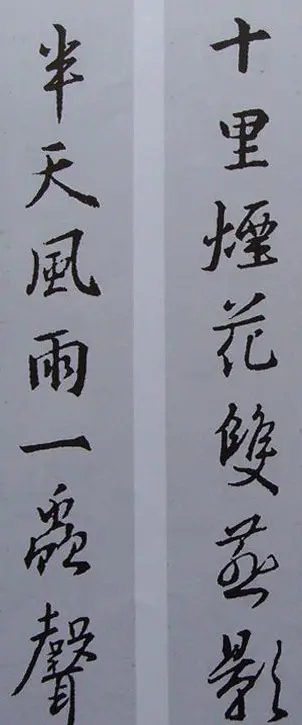 十里煙花雙燕影
半天風雨一聲